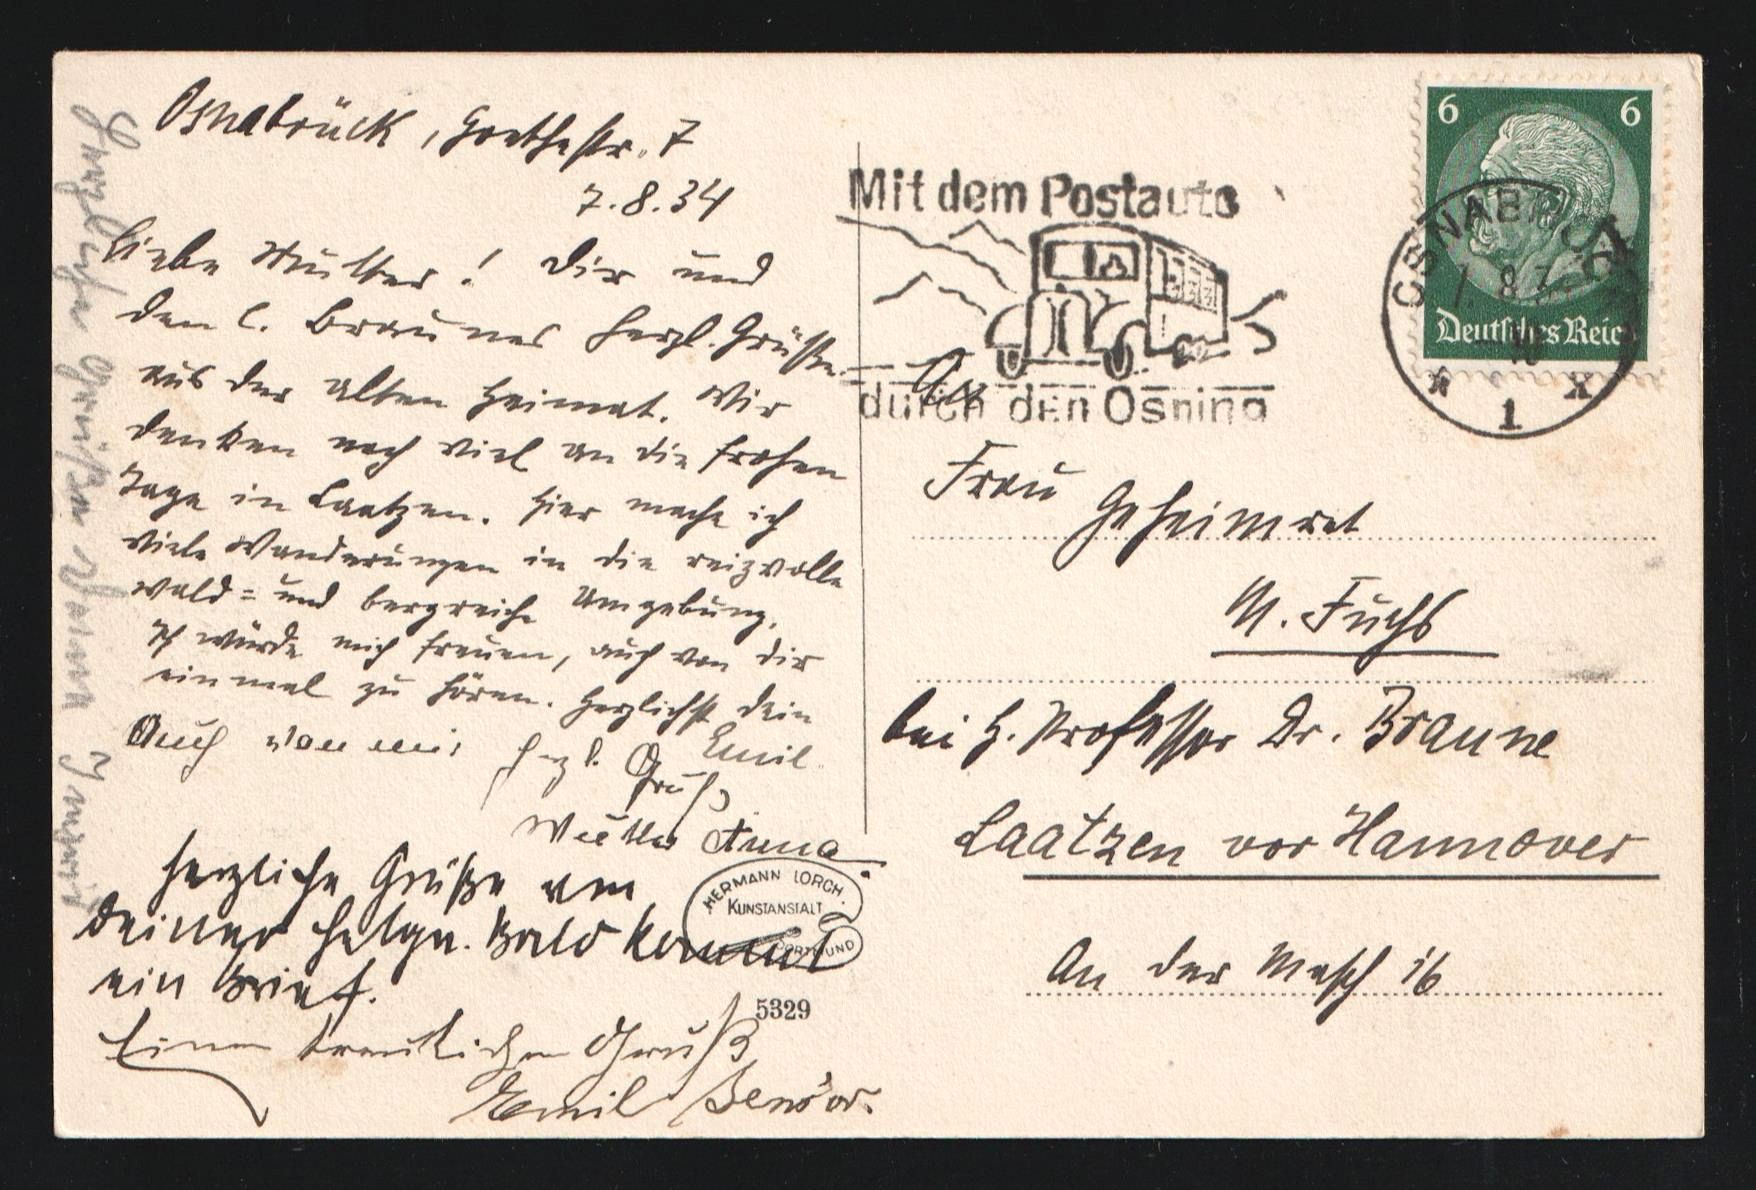 Osnabrück, Goethestr. 7
7.8.34
Liebe Mutter! Dir und
den l. Braunes herzl. Grüße
aus der alten Heimat. Wir
denken noch viel an die frohen
Tage in Laatzen. Hier mache ich
viele Wanderungen in die reizvolle
wald= und bergreiche Umgebung.
Ich würde mich freuen, auch von dir
einmal zu hören. Herzlichst dein
Emil.
Auch von mir herzl. Gruß
Mutter Anna
herzliche Grüße von
deiner Helga. Bald kommt
ein Brief.
Einen freundlichen Gruß
Emil
Herzliche Grüße Deine Ingrid
Mit dem Postauto
durch den Osning
6 6
Deutsches Reich
OSNABRÜCK
7. 8. 34
1
An
Frau Geheimrat
M. Fuchs
bei H. Professor Dr. Braune
Laatzen vor Hannover
An der Masch 16
HERMANN LORCH
KUNSTANSTALT
DORTMUND
5329